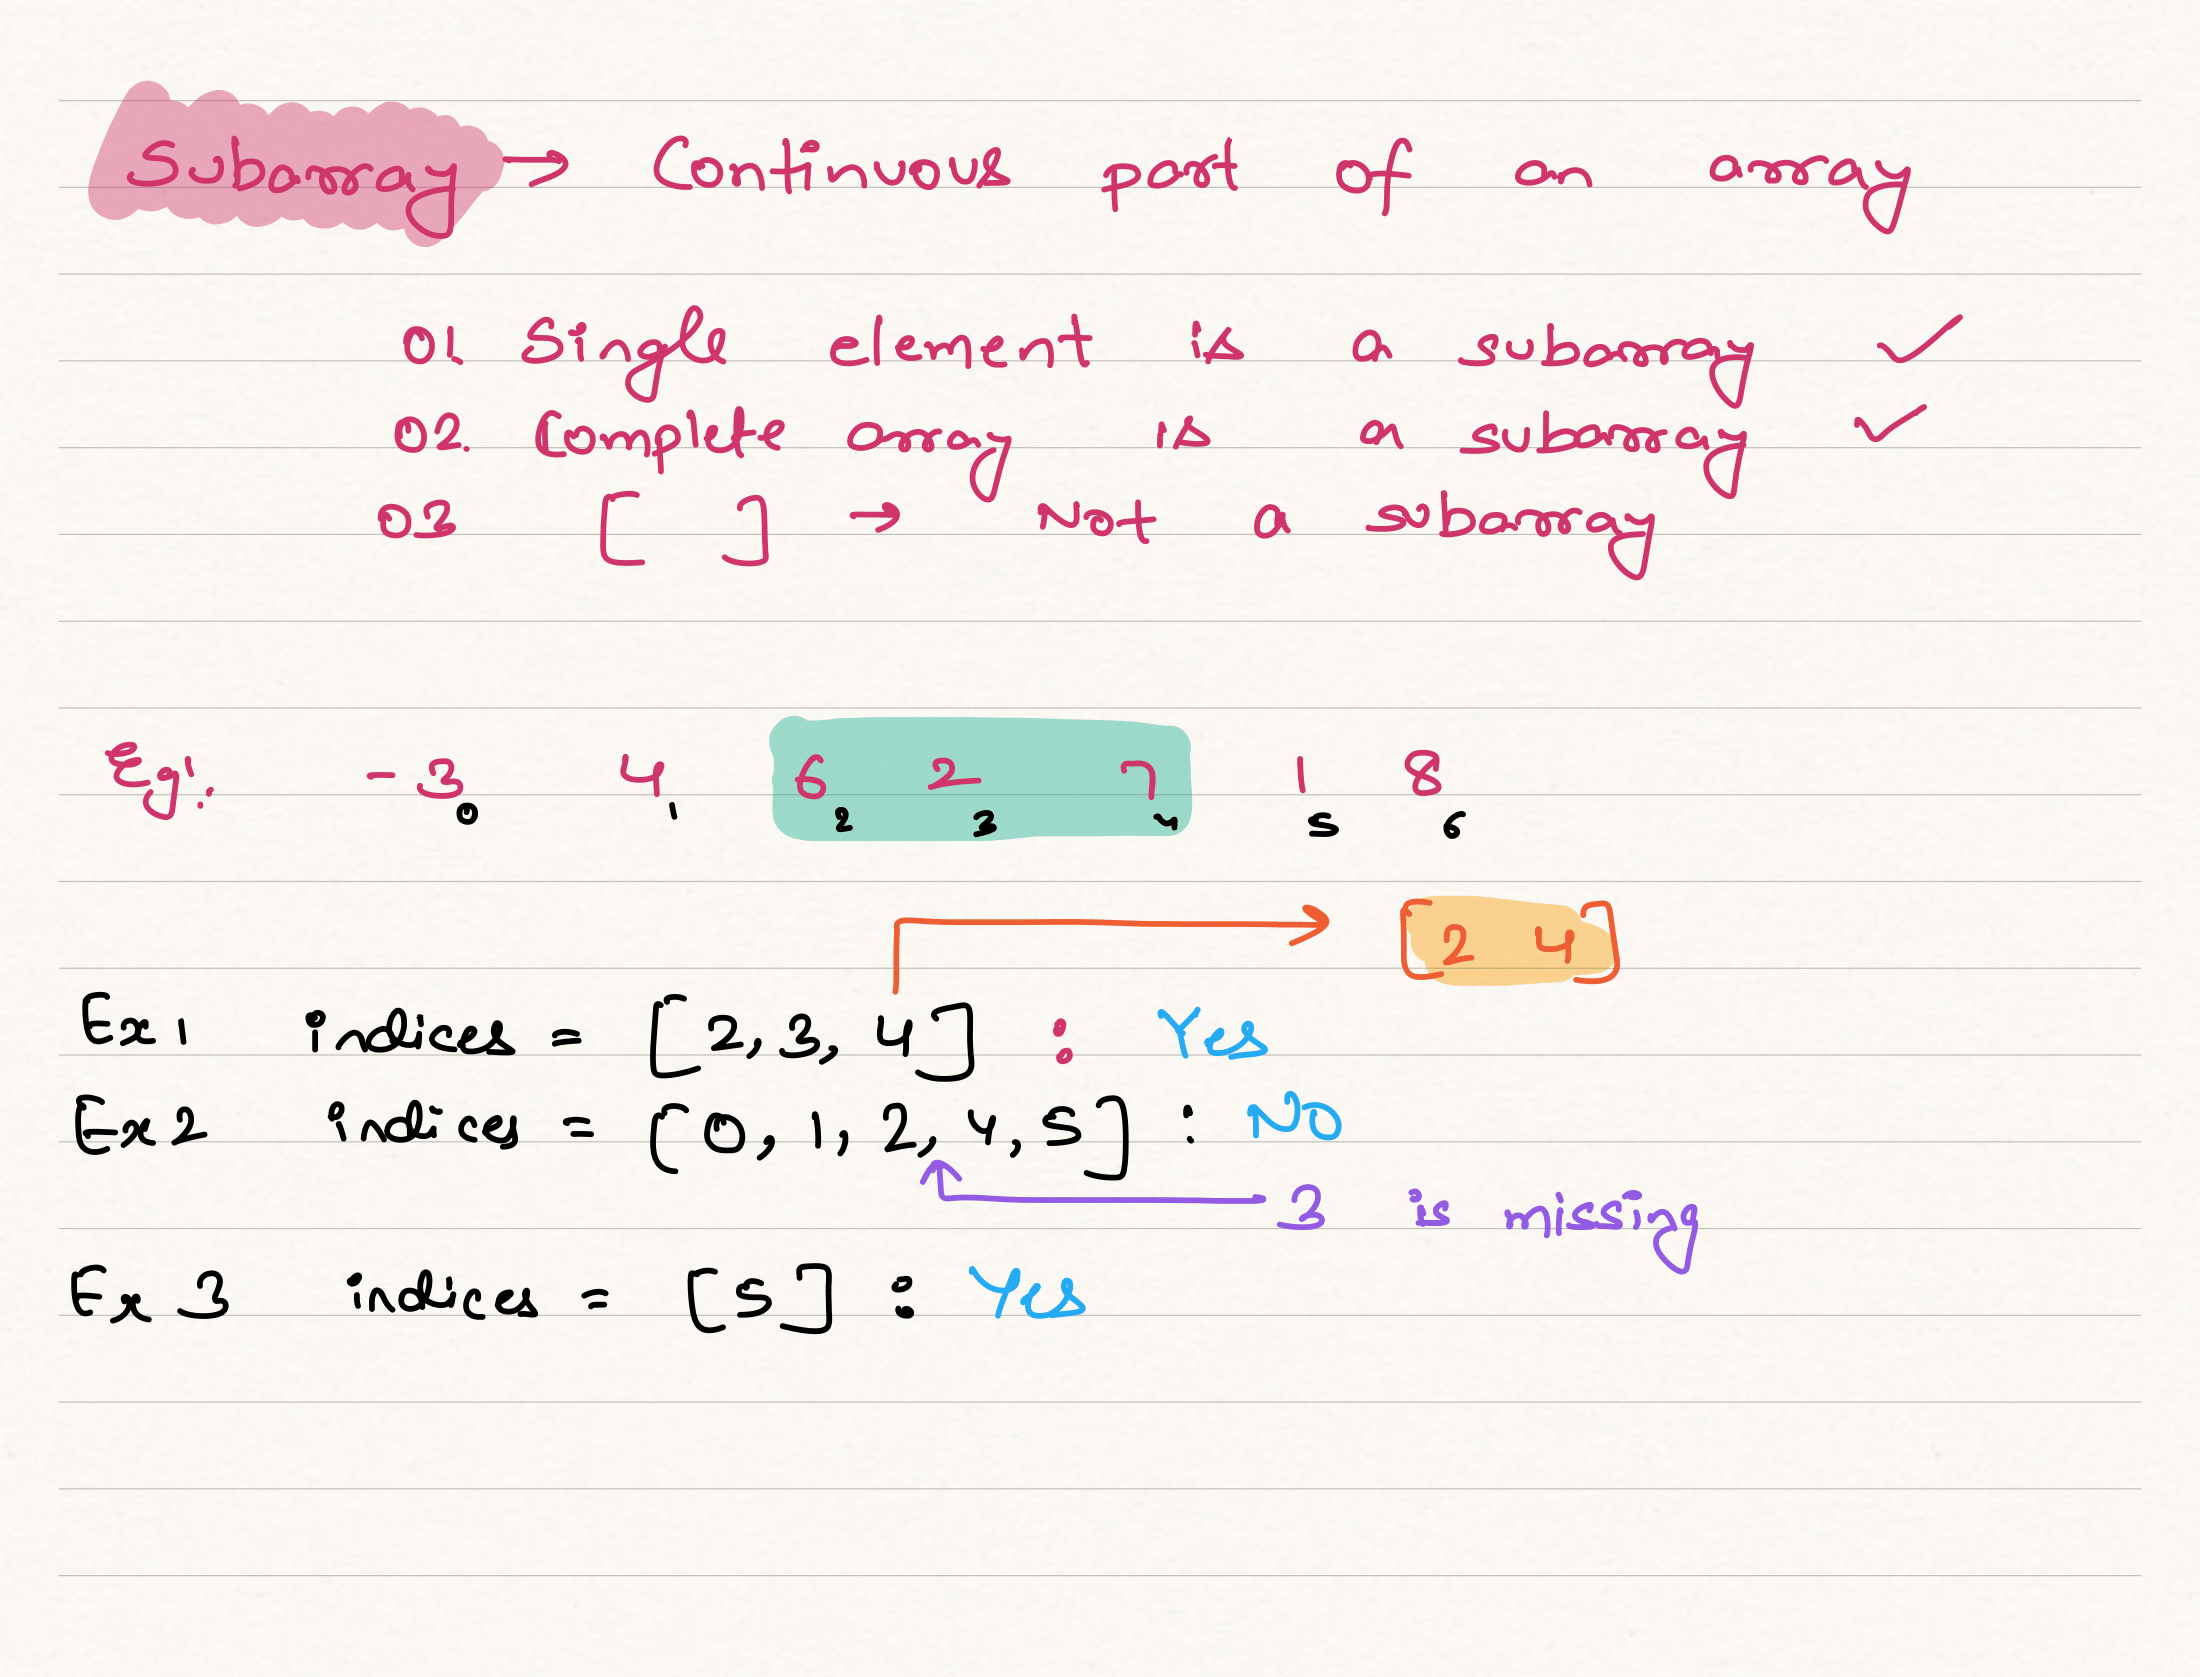 Subarray → Continuous part of an array
01. Single element is a subarray ✓
02. Complete array is a subarray ✓
03 [ ] → Not a subarray
Eg: -3 4 6 2 7 1 8
0 1 2 3 4 5 6
[2 4]
Ex 1 indices = [2, 3, 4] : Yes
Ex 2 indices = [0, 1, 2, 4, 5] : NO
3 is missing
Ex 3 indices = [5] : Yes